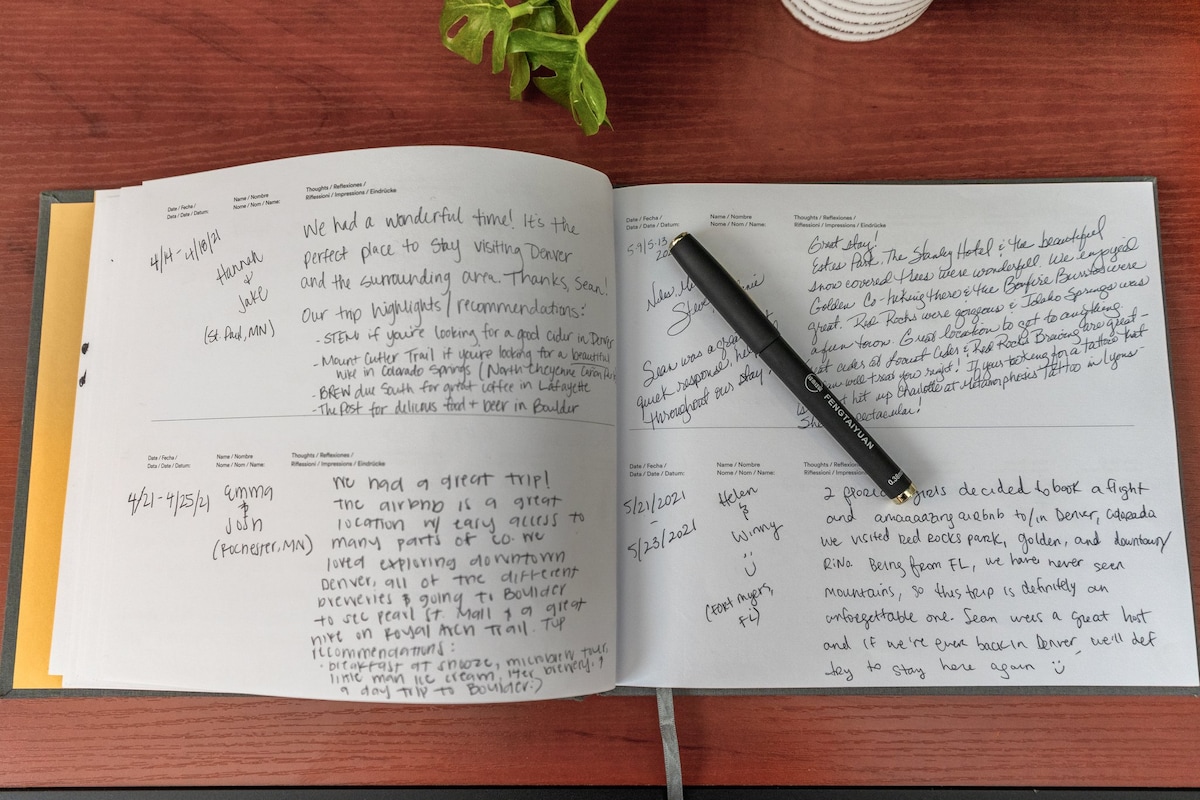 Date / Fecha /
Data / Date / Datum:
Name / Nombre
Nome / Nom / Name:
Thoughts / Reflexiones /
Riflessioni / Impressions / Eindrücke
4/14 - 4/18/21
Hannah
&
Jake
(St. Paul, MN)
We had a wonderful time! It's the
perfect place to stay visiting Denver
and the surrounding area. Thanks, Sean!
Our trip highlights / recommendations:
- STEM if you're looking for a good cider in Denver
- Mount Cutler Trail if you're looking for a beautiful
hike in Colorado Springs (North Cheyenne Canon Park
- BREW due South for great coffee in Lafayette
- The Post for delicious food + beer in Boulder
Date / Fecha /
Data / Date / Datum:
Name / Nombre
Nome / Nom / Name:
Thoughts / Reflexiones /
Riflessioni / Impressions / Eindrücke
4/21 - 4/25/21
emma
&
Josh
(Rochester, MN)
We had a great trip!
The airbnb is a great
location w/ easy access to
many parts of CO. We
loved exploring downtown
Denver, all of the different
breweries & going to Boulder
to see Pearl St. Mall & a great
hike on Royal Arch Trail. Top
recommendations:
- breakfast at snooze, microbrew tour,
little man ice cream, brewery, &
a day trip to Boulder :)
Date / Fecha /
Data / Date / Datum:
Name / Nombre
Nome / Nom / Name:
Thoughts / Reflexiones /
Riflessioni / Impressions / Eindrücke
5-9/5-13
Steve
Sean was a
quick response,
throughout our stay
Great stay!
Estes Park. The Stanley Hotel & the beautiful
snow covered trees were wonderful. We enjoyed
Golden Co - hiking there & the Bonfire Burritos were
great. Red Rocks were gorgeous & Idaho Springs was
a fun town. Great location to get to anything.
ciders at Locust Cider & Red Rocks Brewing are great -
will treat you right! If your looking for a tattoo that
hit up Charlotte at Metamorphosis Tattoo in Lyons -
spectacular!
FENGTAIYUAN
Date / Fecha /
Data / Date / Datum:
Name / Nombre
Nome / Nom / Name:
Thoughts /
Riflessioni / Impressions
5/21/2021
-
5/23/2021
Helen
&
Winny
:)
(FORT Myers,
FL)
2 girls decided to book a flight
and amaaaazing airbnb to/in Denver, Colorado
We visited Red Rocks park, golden, and downtown/
RiNo. Being from FL, we have never seen
mountains, so this trip is definitely an
unforgettable one. Sean was a great host
and if we're ever back in Denver, we'll def
try to stay here again :)